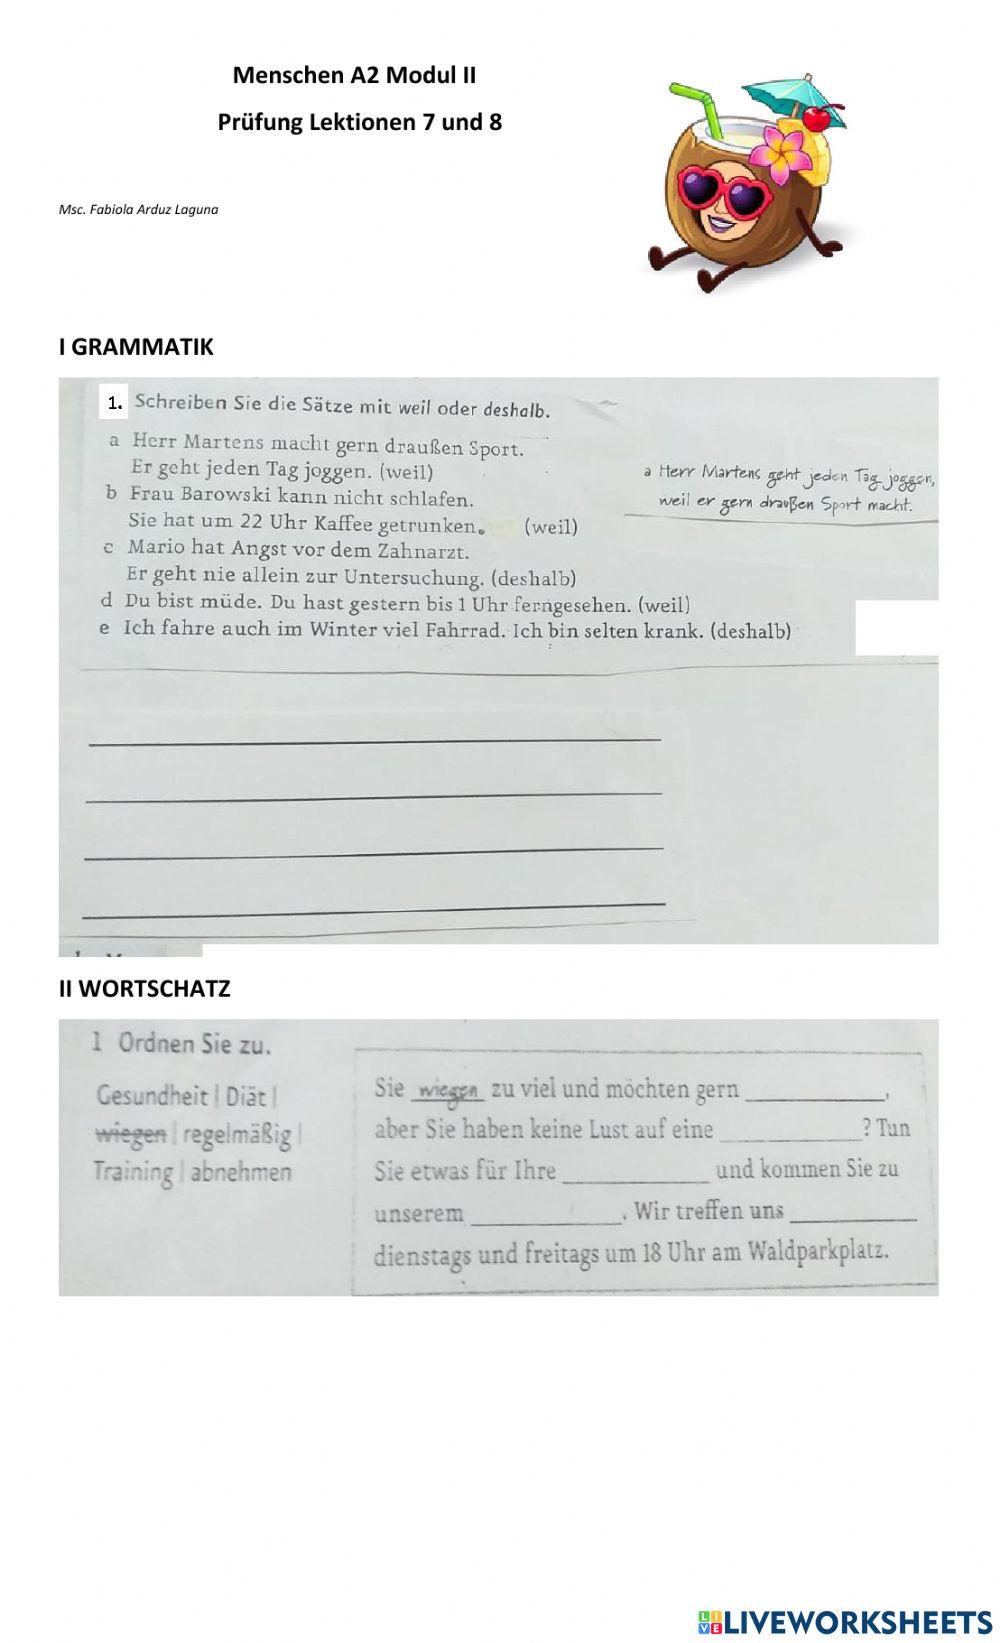 Menschen A2 Modul II
Prüfung Lektionen 7 und 8
Msc. Fabiola Arduz Laguna
I GRAMMATIK
1. Schreiben Sie die Sätze mit weil oder deshalb.
a Herr Martens macht gern draußen Sport.
Er geht jeden Tag joggen. (weil)
a Herr Martens geht jeden Tag joggen,
weil er gern draußen Sport macht.
b Frau Barowski kann nicht schlafen.
Sie hat um 22 Uhr Kaffee getrunken. (weil)
c Mario hat Angst vor dem Zahnarzt.
Er geht nie allein zur Untersuchung. (deshalb)
d Du bist müde. Du hast gestern bis 1 Uhr ferngesehen. (weil)
e Ich fahre auch im Winter viel Fahrrad. Ich bin selten krank. (deshalb)
II WORTSCHATZ
1 Ordnen Sie zu.
Gesundheit | Diät |
wiegen | regelmäßig |
Training | abnehmen
Sie wiegen zu viel und möchten gern ____________,
aber Sie haben keine Lust auf eine ____________? Tun
Sie etwas für Ihre ____________ und kommen Sie zu
unserem ____________. Wir treffen uns ____________
dienstags und freitags um 18 Uhr am Waldparkplatz.
LIVEWORKSHEETS